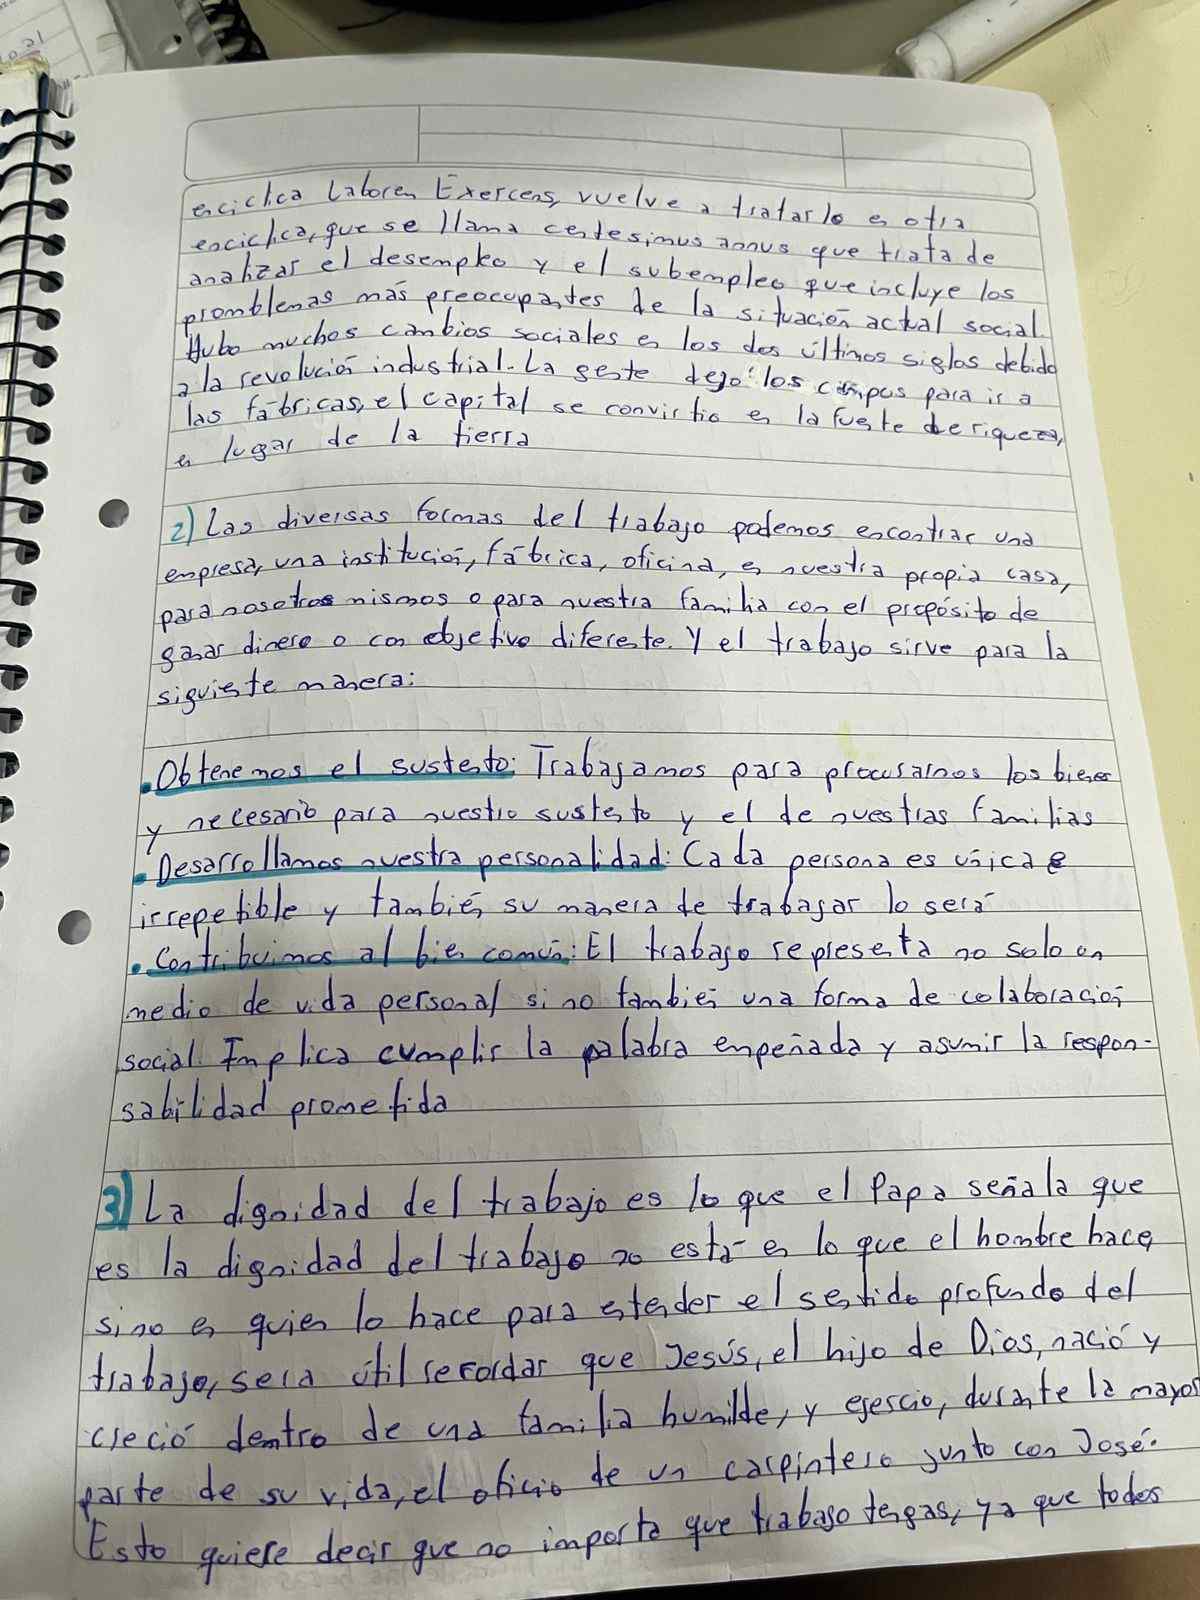 enciclica Laboren Exercens, vuelve a tratarlo en otra
enciclica, que se llama centesimus annus que trata de
analizar el desempleo y el subempleo que incluye los
promblemas más preocupantes de la situación actual social.
Hubo muchos cambios sociales en los dos últimos siglos debido
a la revolución industrial. La gente dejo los campos para ir a
las fábricas, el capital se convirtio en la fuente de riqueza,
en lugar de la tierra
2) Las diversas formas del trabajo podemos encontrar una
empresa, una institución, fábrica, oficina, en nuestra propia casa,
para nosotros mismos o para nuestra familia con el propósito de
ganar dinero o con objetivo diferente. Y el trabajo sirve para la
siguiente manera:
• Obtenemos el sustento: Trabajamos para procurarnos los bienes
y necesario para nuestro sustento y el de nuestras familias
• Desarrollamos nuestra personalidad: Cada persona es única e
irrepetible y también su manera de trabajar lo será
• Contribuimos al bien común: El trabajo representa no solo un
medio de vida personal si no también una forma de colaboración
social. Implica cumplir la palabra empeñada y asumir la respon-
sabilidad prometida
3) La dignidad del trabajo es lo que el Papa señala que
es la dignidad del trabajo no está en lo que el hombre hace,
sino en quien lo hace para entender el sentido profundo del
trabajo, sera útil recordar que Jesús, el hijo de Dios, nació y
creció dentro de una familia humilde, y ejercio, durante la mayor
parte de su vida, el oficio de un carpintero junto con José.
Esto quiere decir que no importa que trabajo tengas, ya que todos